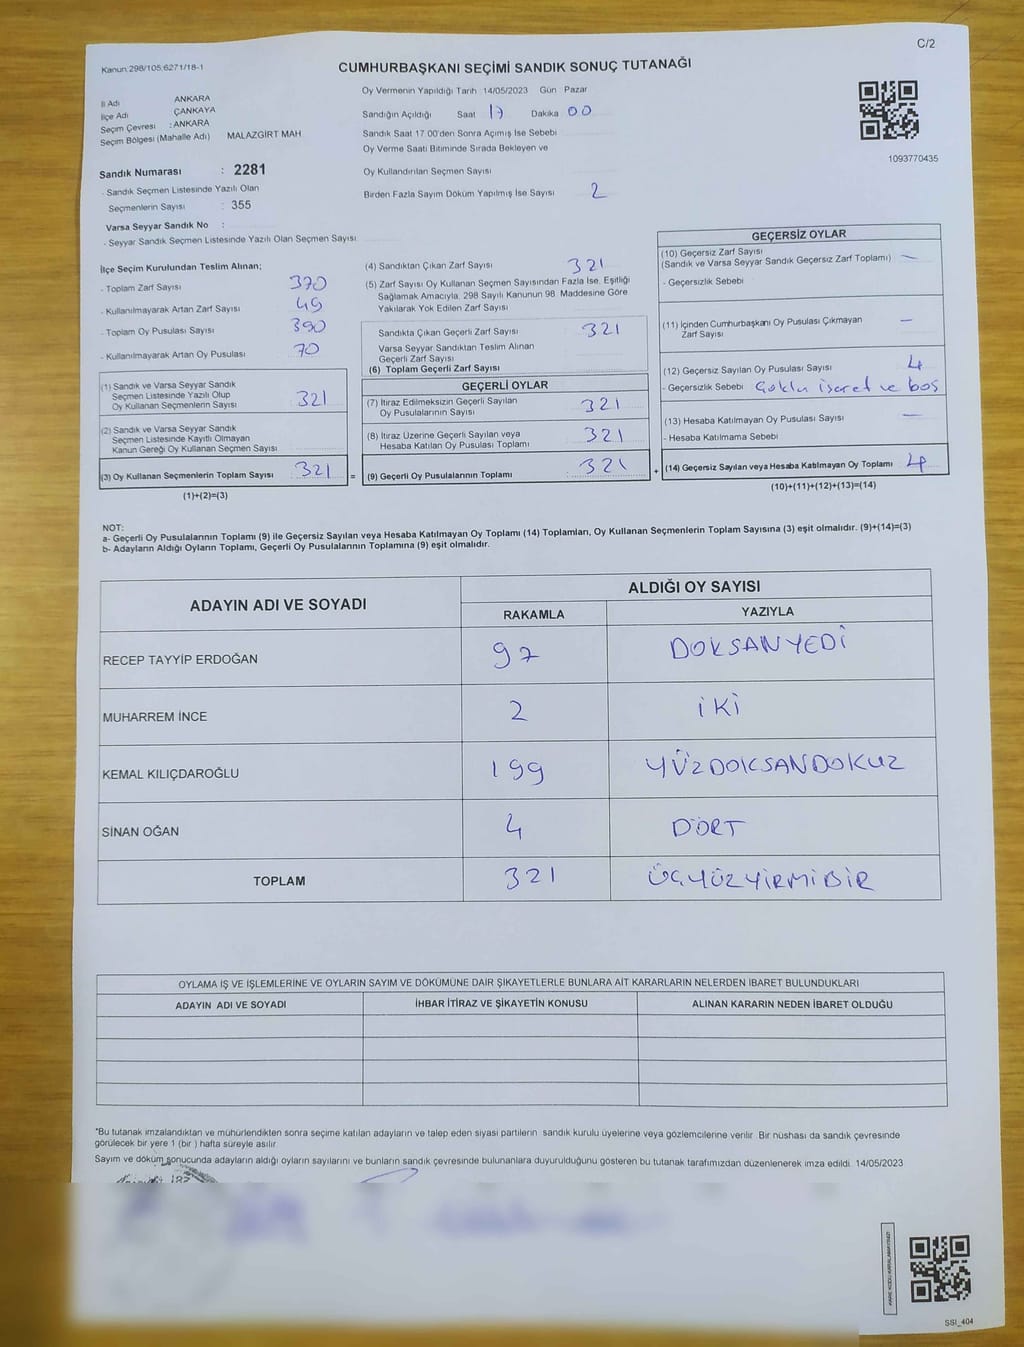 C/2
Kanun:298/105;6271/18-1
CUMHURBAŞKANI SEÇİMİ SANDIK SONUÇ TUTANAĞI
İl Adı ANKARA
İlçe Adı ÇANKAYA
Seçim Çevresi : ANKARA
Seçim Bölgesi (Mahalle Adı) MALAZGİRT MAH.
Oy Vermenin Yapıldığı Tarih 14/05/2023 Gün Pazar
Sandığın Açıldığı Saat 17 Dakika 00
Sandık Saat 17.00'den Sonra Açımış İse Sebebi
Oy Verme Saati Bitiminde Sırada Bekleyen ve
Oy Kullandırılan Seçmen Sayısı
Birden Fazla Sayım Döküm Yapılmış İse Sayısı 2
1093770435
Sandık Numarası : 2281
- Sandık Seçmen Listesinde Yazılı Olan
Seçmenlerin Sayısı : 355
Varsa Seyyar Sandık No :
- Seyyar Sandık Seçmen Listesinde Yazılı Olan Seçmen Sayısı
İlçe Seçim Kurulundan Teslim Alınan;
- Toplam Zarf Sayısı 370
- Kullanılmayarak Artan Zarf Sayısı 49
- Toplam Oy Pusulası Sayısı 390
- Kullanılmayarak Artan Oy Pusulası 70
(1) Sandık ve Varsa Seyyar Sandık
Seçmen Listesinde Yazılı Olup
Oy Kullanan Seçmenlerin Sayısı 321
(2) Sandık ve Varsa Seyyar Sandık
Seçmen Listesinde Kayıtlı Olmayan
Kanun Gereği Oy Kullanan Seçmen Sayısı
(3) Oy Kullanan Seçmenlerin Toplam Sayısı 321 =
(1)+(2)=(3)
(4) Sandıktan Çıkan Zarf Sayısı 321
(5) Zarf Sayısı Oy Kullanan Seçmen Sayısından Fazla İse, Eşitliği
Sağlamak Amacıyla, 298 Sayılı Kanunun 98. Maddesine Göre
Yakılarak Yok Edilen Zarf Sayısı
Sandıkta Çıkan Geçerli Zarf Sayısı 321
Varsa Seyyar Sandıktan Teslim Alınan
Geçerli Zarf Sayısı
(6) Toplam Geçerli Zarf Sayısı
GEÇERLİ OYLAR
(7) İtiraz Edilmeksizin Geçerli Sayılan
Oy Pusulalarının Sayısı 321
(8) İtiraz Üzerine Geçerli Sayılan veya
Hesaba Katılan Oy Pusulası Toplamı 321
(9) Geçerli Oy Pusulalarının Toplamı 321 +
GEÇERSİZ OYLAR
(10) Geçersiz Zarf Sayısı
(Sandık ve Varsa Seyyar Sandık Geçersiz Zarf Toplamı) —
- Geçersizlik Sebebi
(11) İçinden Cumhurbaşkanı Oy Pusulası Çıkmayan
Zarf Sayısı —
(12) Geçersiz Sayılan Oy Pusulası Sayısı 4
- Geçersizlik Sebebi Çoklu işaret ve boş
(13) Hesaba Katılmayan Oy Pusulası Sayısı —
- Hesaba Katılmama Sebebi
(14) Geçersiz Sayılan veya Hesaba Katılmayan Oy Toplamı 4
(10)+(11)+(12)+(13)=(14)
NOT:
a- Geçerli Oy Pusulalarının Toplamı (9) ile Geçersiz Sayılan veya Hesaba Katılmayan Oy Toplamı (14) Toplamları, Oy Kullanan Seçmenlerin Toplam Sayısına (3) eşit olmalıdır. (9)+(14)=(3)
b- Adayların Aldığı Oyların Toplamı, Geçerli Oy Pusulalarının Toplamına (9) eşit olmalıdır.
ADAYIN ADI VE SOYADI ALDIĞI OY SAYISI
RAKAMLA YAZIYLA
RECEP TAYYİP ERDOĞAN 97 DOKSANYEDİ
MUHARREM İNCE 2 İKİ
KEMAL KILIÇDAROĞLU 199 YÜZDOKSANDOKUZ
SİNAN OĞAN 4 DÖRT
TOPLAM 321 ÜÇYÜZYİRMİBİR
OYLAMA İŞ VE İŞLEMLERİNE VE OYLARIN SAYIM VE DÖKÜMÜNE DAİR ŞİKAYETLERLE BUNLARA AİT KARARLARIN NELERDEN İBARET BULUNDUKLARI
ADAYIN ADI VE SOYADI İHBAR İTİRAZ VE ŞİKAYETİN KONUSU ALINAN KARARIN NEDEN İBARET OLDUĞU
"Bu tutanak imzalandıktan ve mühürlendikten sonra seçime katılan adayların ve talep eden siyasi partilerin sandık kurulu üyelerine veya gözlemcilerine verilir. Bir nüshası da sandık çevresinde
görülecek bir yere 1 (bir ) hafta süreyle asılır.
Sayım ve döküm sonucunda adayların aldığı oyların sayılarını ve bunların sandık çevresinde bulunanlara duyurulduğunu gösteren bu tutanak tarafımızdan düzenlenerek imza edildi. 14/05/2023
KARE KODU KARALAMAYINIZ!
SSI_404